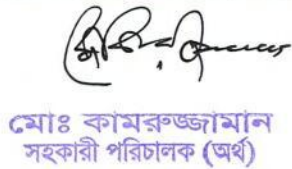 মোঃ কামরুজ্জামান
সহকারী পরিচালক (অর্থ)